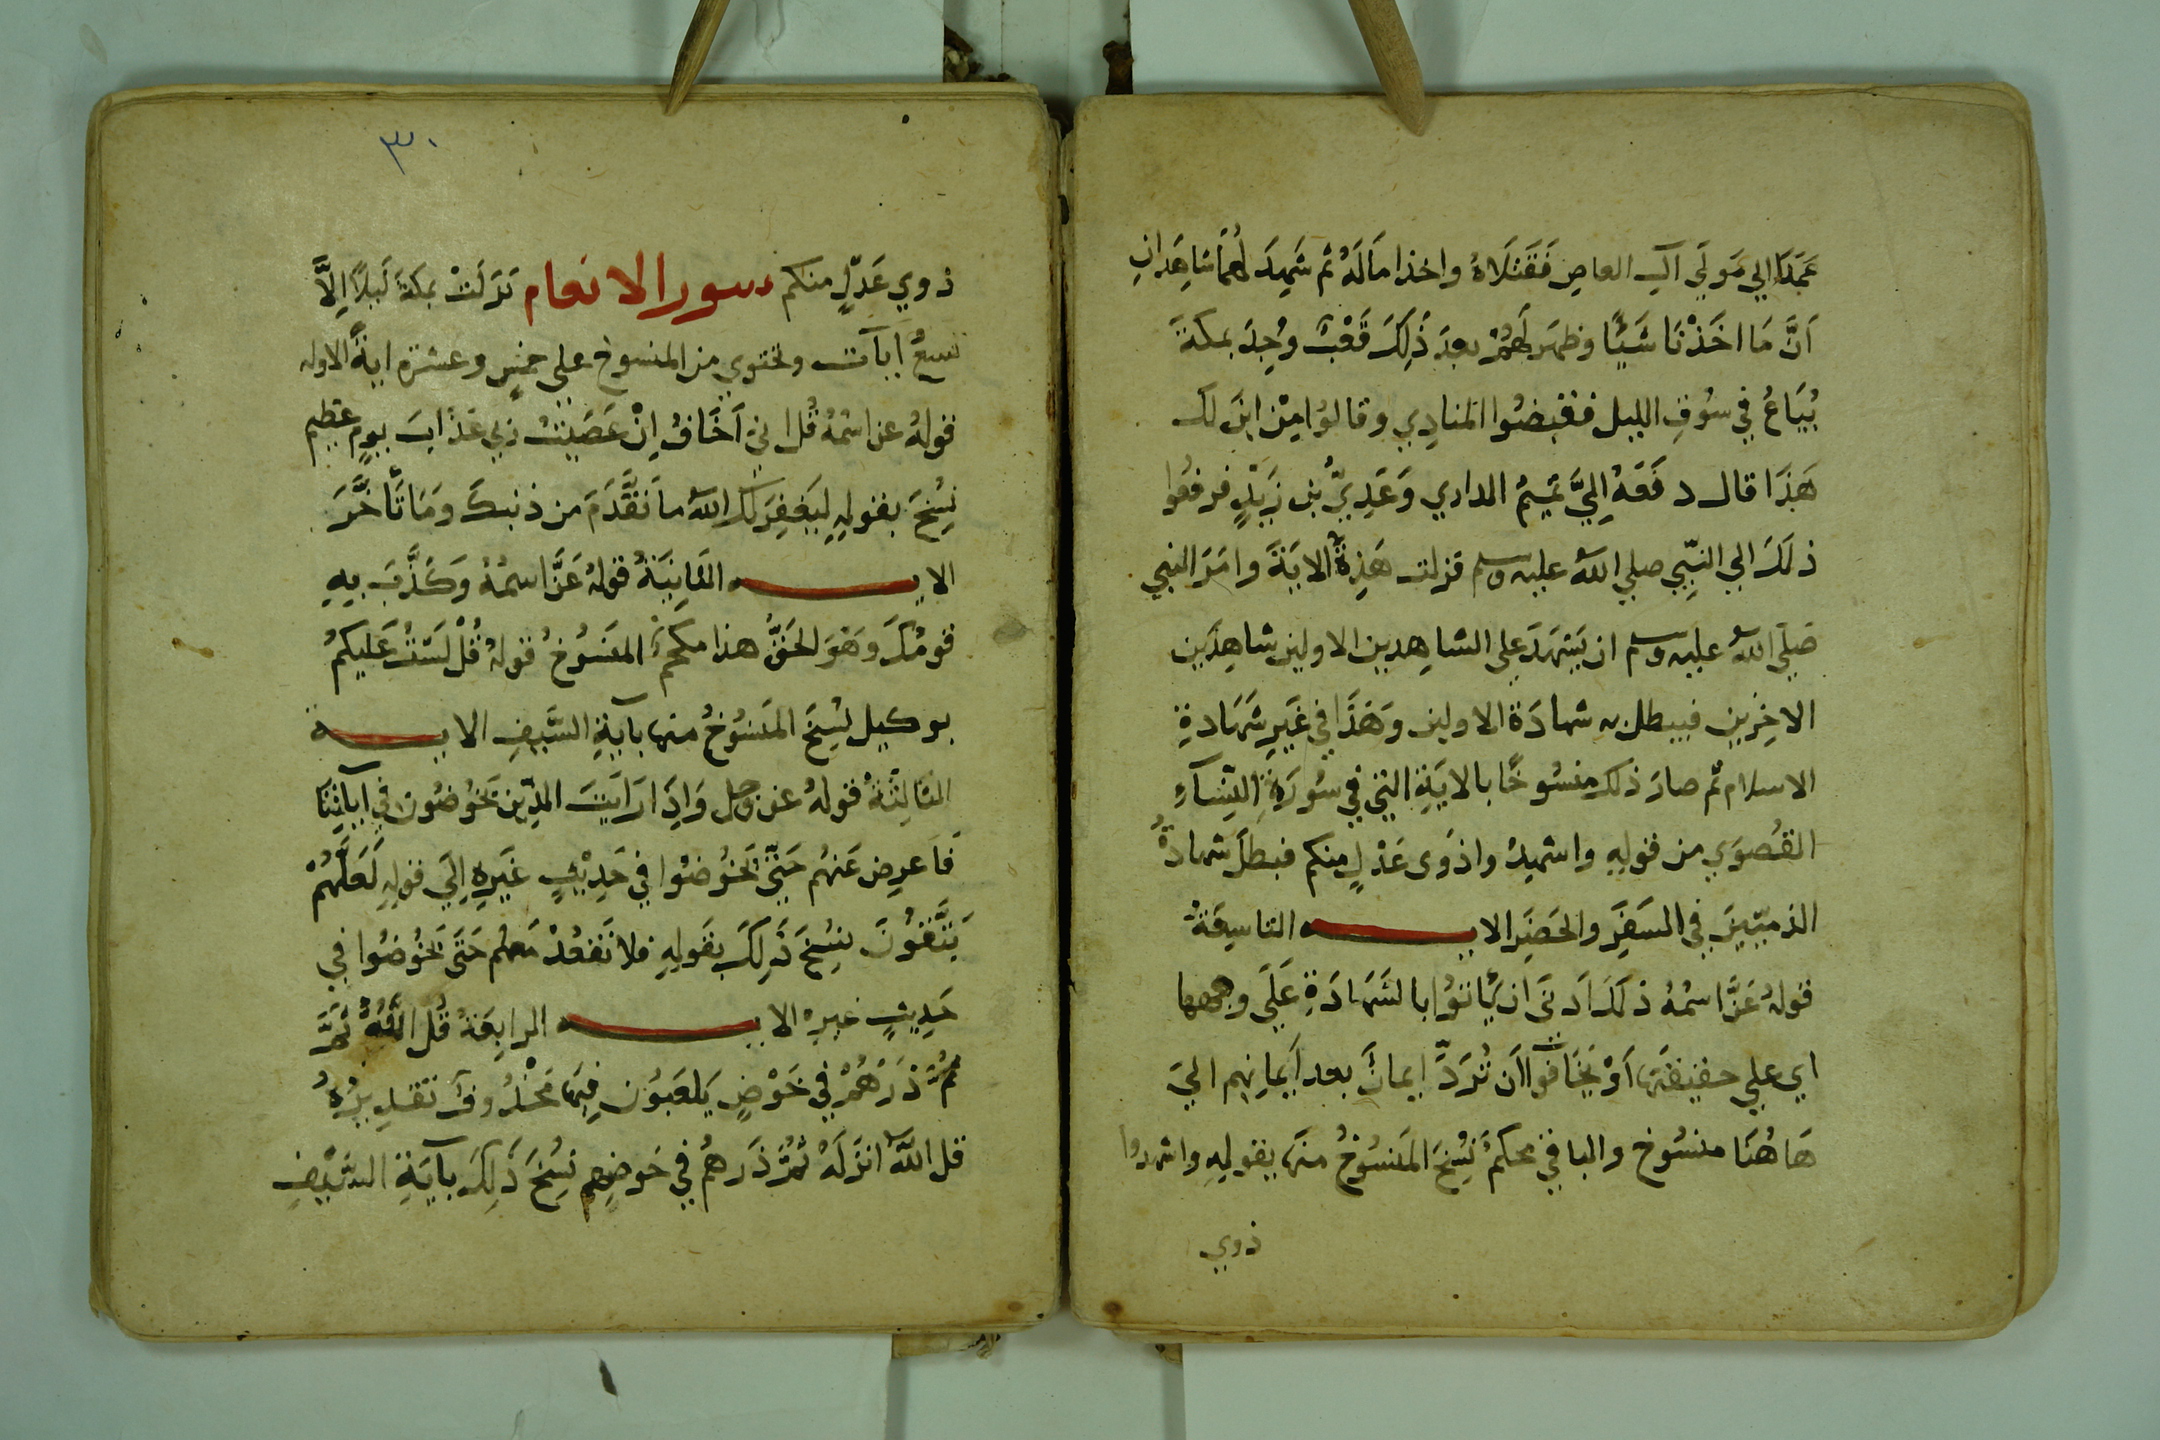 عَمَدَا الي مَولَي آلِ العاصِ فَقَتَلَاهُ واخذا مَالَهُ ثم شَهِدَ لهُما شاهِدانِ
اَنَّ مَا اخَذْنَا شَيْئًا وظهَر لَهُمْ بعدَ ذَلِكَ قَعْبٌ وُجِدَ بمكةَ
يُبَاعُ في سُوقِ الليل فقبضُوا المنادِي وقالوُا مِنْ اينَ لك
هَذَا قال دفَعَهُ اِلَيَّ تميمُ الداري وَعَدِيُّ بن زَيْدٍ فرفعُوا
ذلكَ الي النَبِّي صلي اللهُ عليه وسلم فنزلت هَذِهِ الايَةَ وامَرَ النبي
صَلي اللهُ عليه وسلم ان يَشهَدَ علي الشاهِدين الاولين شاهِدَين
الاخِرين فيبطل به شهادَة الاولين وَهَذَا في غَيرِ شَهَادةِ
الاسلام ثم صارَ ذلك منسُوخًا بالايَةِ التي في سُورَةِ النِسَآءِ
القُصوَي من قولهِ واشهِدُوا ذَوى عَدْلٍ منكم فبطلَ شهادةُ
الذمّيينَ في السَفَرِ والحَضَرِ الايـــه التاسِعَةُ
قولهُ عَزَّ اسمُهُ ذلكَ اَدنَى ان يأتوُا بالشَهَادَةِ عَلَى وجهها
اي علي حقيقتها اَوْ يَخَافُوا اَن تُرَدَّ ايمانٌ بعد اَيمانِهم الي
هَاهُنَا منسُوخ والباقي محكمٌ نُسِخَ المَنسُوخُ منها بقولهِ واشهدوا
ذوي
٣٠
ذوي عَدلٍ منكم سورا الانعام نَزَلَتْ بمكةَ لَيلًا اِلَّا
تسعُ اَيآت وتحتوي من المنسوخ علي خمسٍ وعشرة ايةً الاوله
قولهُ عز اسمُهُ قُل اني اَخَافُ اِنْ عَصَيتُ ربي عَذَابَ يومٍ عَظِيم
نُسِخَ بقولِهِ لِيَغفِرَ لكَ اللهُ ما تقَّدَمَ من ذنبكَ ومَا تَأخَّرَ
الايـــه الثانِيَةُ قولهُ عَزَّ اسمُهُ وَكَذَّبَ بِهِ
قومُكَ وهَوَ الحَقُّ هذا مكحمٌ المَنسُوخُ قولهُ قُلْ لَستُ عَلَيكمُ
بوكيل نُسِخَ المَنسُوخُ منها بآيةِ السَّيفِ الايـــة
الثالِثَةُ قولهُ عز وجل وَاِذَا رَايتَ الذِين يَخُوضُون في آياتِنَا
فَاَعرِض عَنهُم حَتّى يَخُوضوُا في حَدِيثٍ غَيرِهِ اِلَي قولهِ لَعَلَّهُمْ
يَتَّقوُنَ نسِخَ ذَلِكَ بقَولِهِ فلا تَقعُدْ مَعهم حَتَى يَخُوضُوا في
حَدِيثٍ غيرِهِ الايـــه الرابِعَةُ قُل اللهُ ثُمَّ
ثُمَّ ذَرَهُمْ في خَوْضٍ يَلعَبوُن فِيهَا مَحْذُوفٌ تقدِيرُهُ
قل اللهُ انزَلَهُ ثُمَّ ذَرهُم في خَوضِهِم نُسِخَ ذَلِكَ بآيَةِ السَّيْفِ